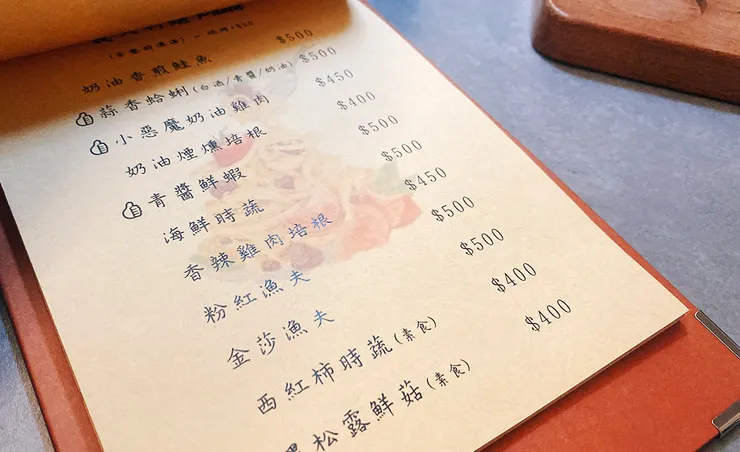 奶油香煎鮭魚 $500
蒜香蛤蜊(白酒/青醬/奶油) $500
小惡魔奶油雞肉 $450
奶油煙燻培根 $400
青醬鮮蝦 $500
海鮮時蔬 $500
香辣雞肉培根 $450
粉紅漁夫 $500
金莎漁夫 $500
西紅柿時蔬(素食) $400
松露鮮菇(素食) $400